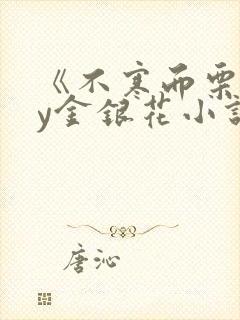 《不寒而栗
y金银花小说
唐沁